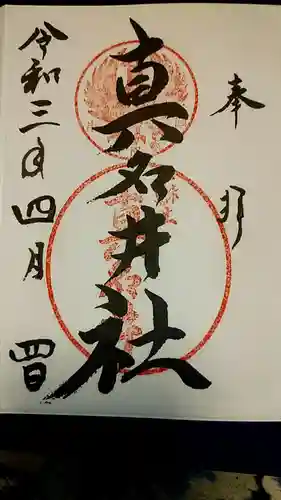 奉拝
真名井社
令和三年四月四日